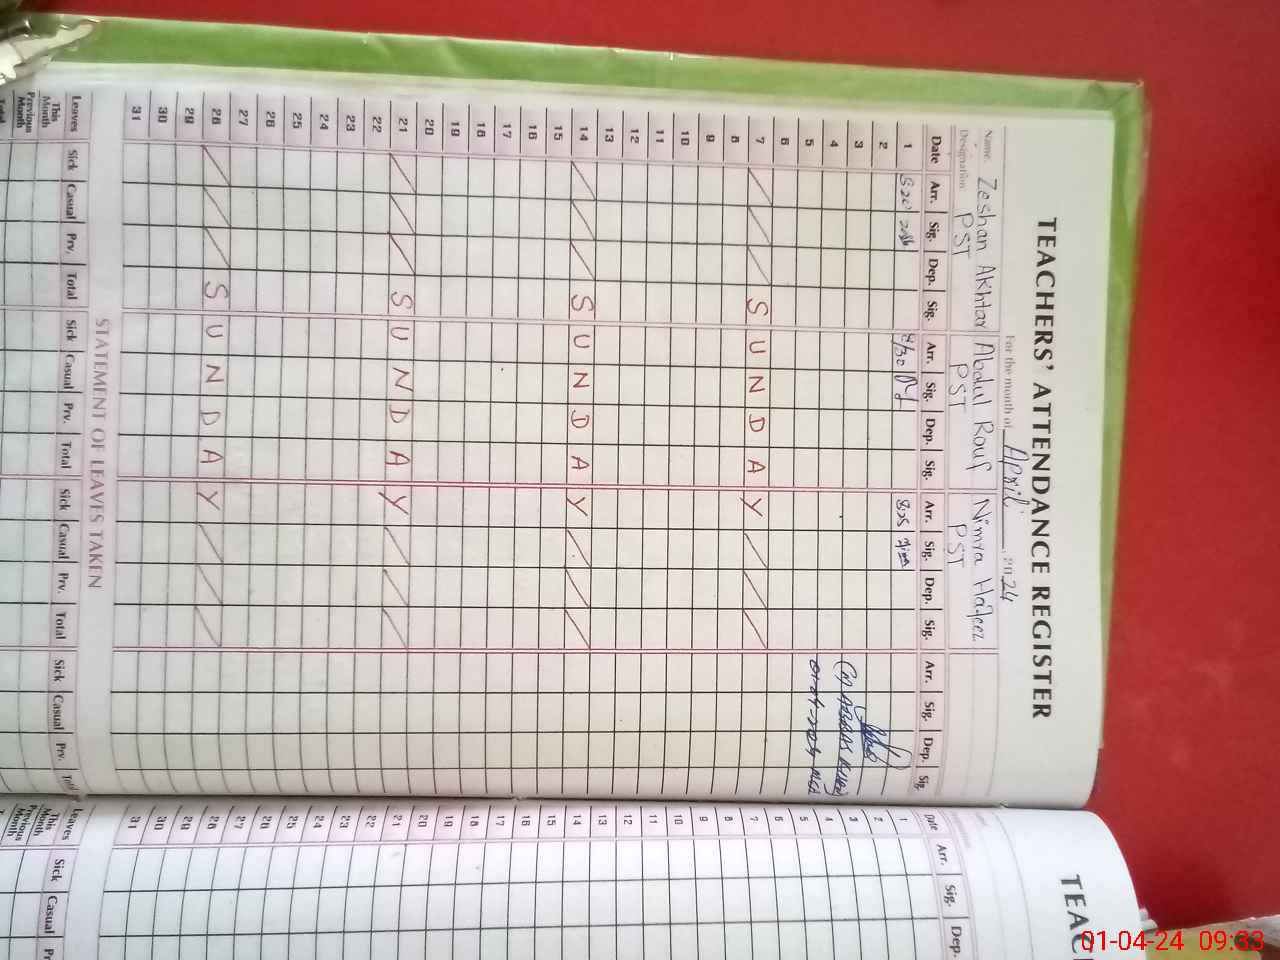 TEACHERS' ATTENDANCE REGISTER
For the month of April, 2024
Name. Zeshan Akhtar Abdul Rouf Nimra Hafeez
Designation PST PST PST
Date Arr. Sig. Dep. Sig. Arr. Sig. Dep. Sig. Arr. Sig. Dep. Sig. Arr. Sig. Dep. Sig.
1 8:20 8/30 825
2
3
4
5
6
7 SUNDAY
8
9
10
11
12
13
14 SUNDAY
15
16
17
18
19
20
21 SUNDAY
22
23
24
25
26
27
28 SUNDAY
29
30
31
STATEMENT OF LEAVES TAKEN
Leaves Sick Casual Prv. Total Sick Casual Prv. Total Sick Casual Prv. Total Sick Casual Prv. Total
This Month
Previous Month
Total
01-04-2024
TEAC
Date Arr. Sig. Dep.
1
2
3
4
5
6
7
8
9
10
11
12
13
14
15
16
17
18
19
20
21
22
23
24
25
26
27
28
29
30
31
Leaves Sick Casual
This Month
Previous Month
01-04-24 09:33